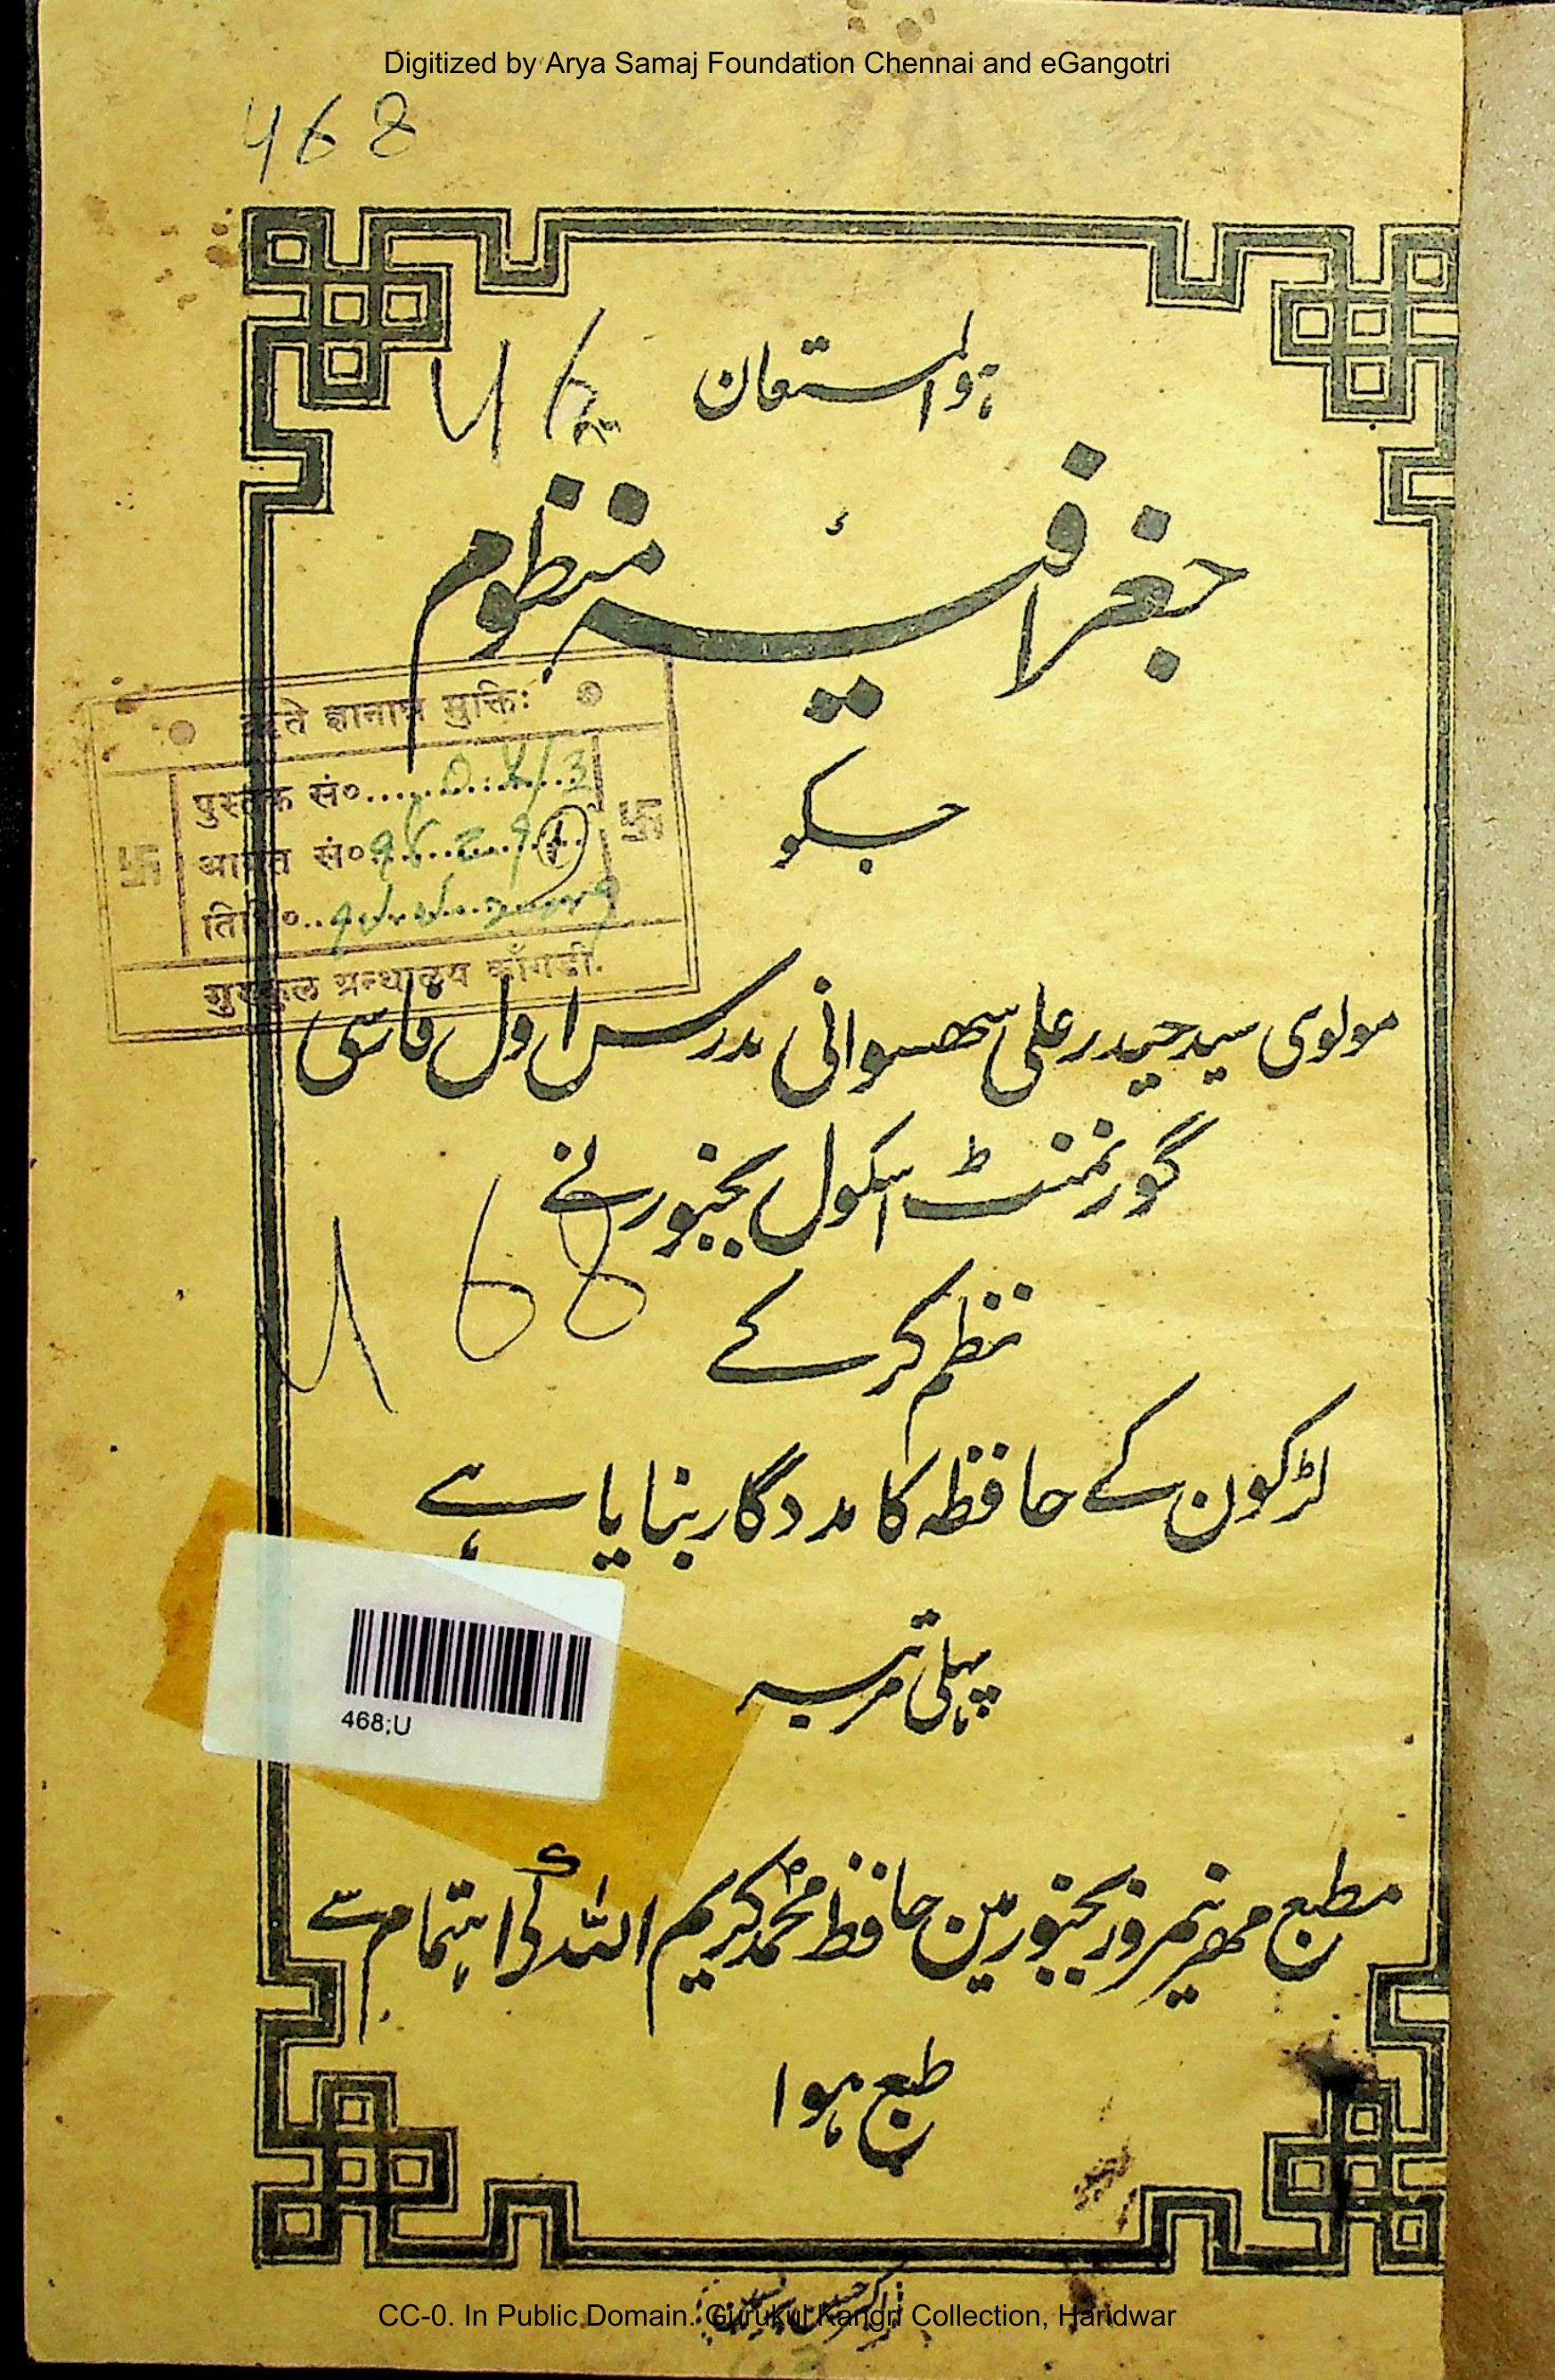 Digitized by Arya Samaj Foundation Chennai and eGangotri
468
ہوالمستعان
جغرافیۂ منظوم
جسکو
ऋते ज्ञानान्न मुक्तिः
पुस्तक सं०
आगत सं०
तिथि०
गुरुकुल ग्रन्थालय काँगड़ी.
مولوی سید حیدر علی سھسوانی مدرس اول فارسی
گورنمنٹ اسکول بجنور نے
نظم کر کے
لڑکون کے حافظہ کا مددگار بنایا ہے
468;U
پہلی مرتبہ
مطبع مہر نیمروز بجنور مین حافظ محمد کریم اللہ کے اہتمام سے
طبع ہوا
CC-0. In Public Domain. Gurukul Kangri Collection, Haridwar